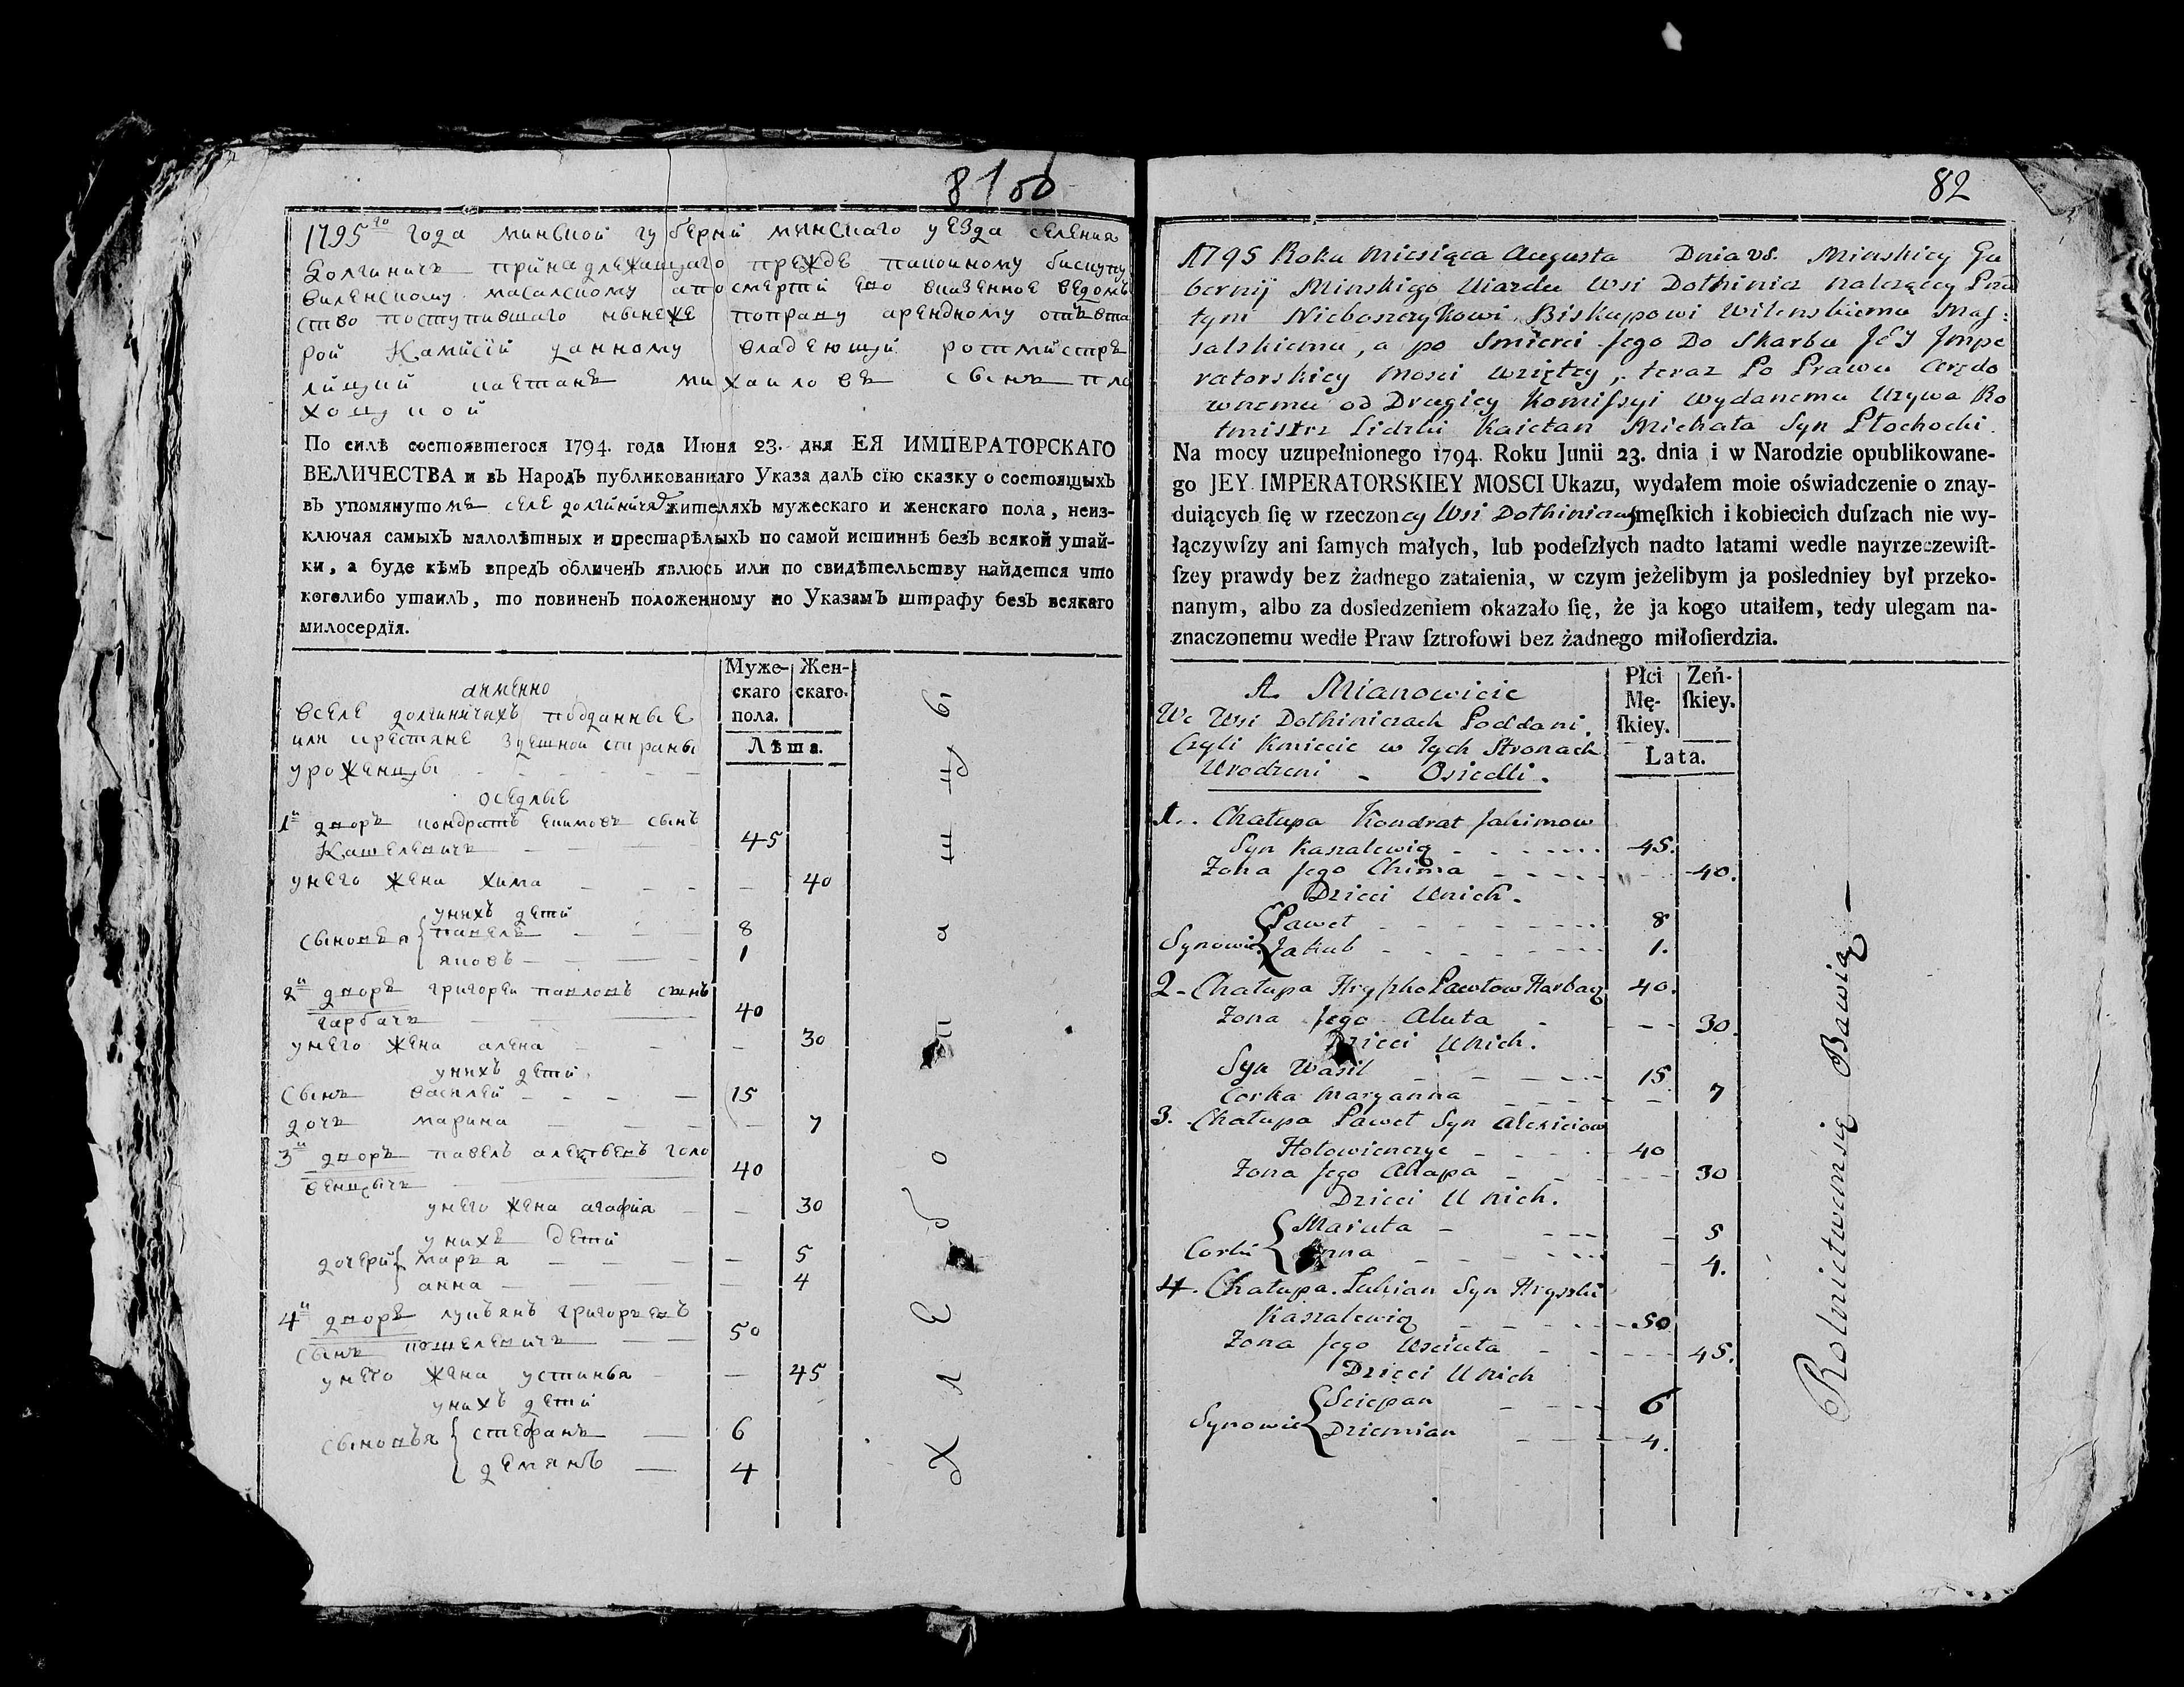 81об
1795го года минской губерний минскаго уезда селения
Долгиничъ принадлежащаго прежде покоиному бискупу
виленскому масалскому а по смерти его вказенное ведом
ство поступившаго нынеже поправу арендному отъ вто
рой Камисїи данному владеющий ротмистръ
лидский каетанъ михаиловъ сынъ пло
хоцкой
По силѣ состоявшегося 1794. года Июня 23. дня ЕЯ ИМПЕРАТОРСКАГО
ВЕЛИЧЕСТВА и въ Народъ публикованнаго Указа далъ сїю сказку о состоящыхъ
въ упомянутомъ селе долгиничахъ жителяхъ мужескаго и женскаго пола, неиз-
ключая самыхъ малолѣтныхъ и престарѣлыхъ по самой истиннѣ безъ всякой утай-
ки, а буде кѣмъ впредъ обличенъ явлюсь или по свидѣтельству найдется что
коголибо утаилъ, то повиненъ положенному по Указамъ штрафу безъ всякаго
милосердїя.
Муже-
скаго
пола.
Жен-
скаго.
Лѣта.
а имѣнно
вселе долгиничахъ подданные
или крестяне здешной страны
уроженцы
оседлые
1й дворъ кондратъ екимовъ сынъ
Кашелевичъ 45
унего жена хима 40
унихъ дети
сыновья павелъ 8
яковъ 1
2й дворъ григореи павловъ сынъ
гарбачъ 40
унего жена алена 30
унихъ дети
Сынъ василей 15
дочь марина 7
3й дворъ павелъ алексѣевъ голо
венчычъ 40
унего жена агафия 30
унихъ дети
дочери марья 5
анна 4
4й дворъ лукъянъ григорьевъ
сынъ кошелевичъ 50
унего жена устинья 45
унихъ дети
сыновья стефанъ 6
демянъ 4
Хлебопашцы
82
1795 Roku Miesiąca Augusta Dnia 28. Minskiey Gu
bernij Minskigo Uiazdu Wsi Dołhinicz należącey Prze
tym Nieboszczykowi Biskupowi Wilenskiemu Mas:
salskiemu, a po Smierci Jego Do Skarbu JEY Jmpe
ratorskiey Mosci wziętey, teraz Po Prawu Arędo
wnemu od Drugiey Komiſsyi wydanemu Używa Ro
tmistrz Lidzki Kaietan Michała Syn Płochocki.
Na mocy uzupełnionego 1794. Roku Junii 23. dnia i w Narodzie opublikowane-
go JEY IMPERATORSKIEY MOSCI Ukazu, wydałem moie oświadczenie o znay-
duiących ſię w rzeczoney Wsi Dołhiniczach męſkich i kobiecich duſzach nie wy-
łączywſzy ani ſamych małych, lub podeſzłych nadto latami wedle nayrzeczewiſt-
ſzey prawdy bez żadnego zataienia, w czym jeżelibym ja posledniey był przeko-
nanym, albo za dosledzeniem okazało ſię, że ja kogo utaiłem, tedy ulegam na-
znaczonemu wedle Praw ſztrofowi bez żadnego miłoſierdzia.
Płci
Mę-
ſkiey.
Zeń-
ſkiey.
Lata.
A. Mianowicie
We Wsi Dołhiniczach Poddani
Czyli Kmiecie w Tych Stronach
Urodzeni - Osiedli.
1. Chałupa Kondrat Jakimow
Syn Kaszalewicz 45.
Zona Jego Chima 40.
Dzieci Unich.
Synowie Paweł 8
Jakub 1.
2. Chałupa Hryszko Pawłow Harbacz 40.
Zona Jego Aluta 30.
Dzieci Unich.
Syn Wasil 15.
Corka Maryanna 7
3. Chałupa Paweł Syn Alexieiow
Hołowienczyc 40
Zona Jego Ahapa 30
Dzieci Unich.
Corki Maruta 5
Anna 4.
4. Chałupa. Lukian Syn Hryszki
Kaszalewicz 50
Zona Jego Usciuta 45.
Dzieci Unich
Synowie Sciepan 6
Dziemian 4.
Rolnictwem się Bawią